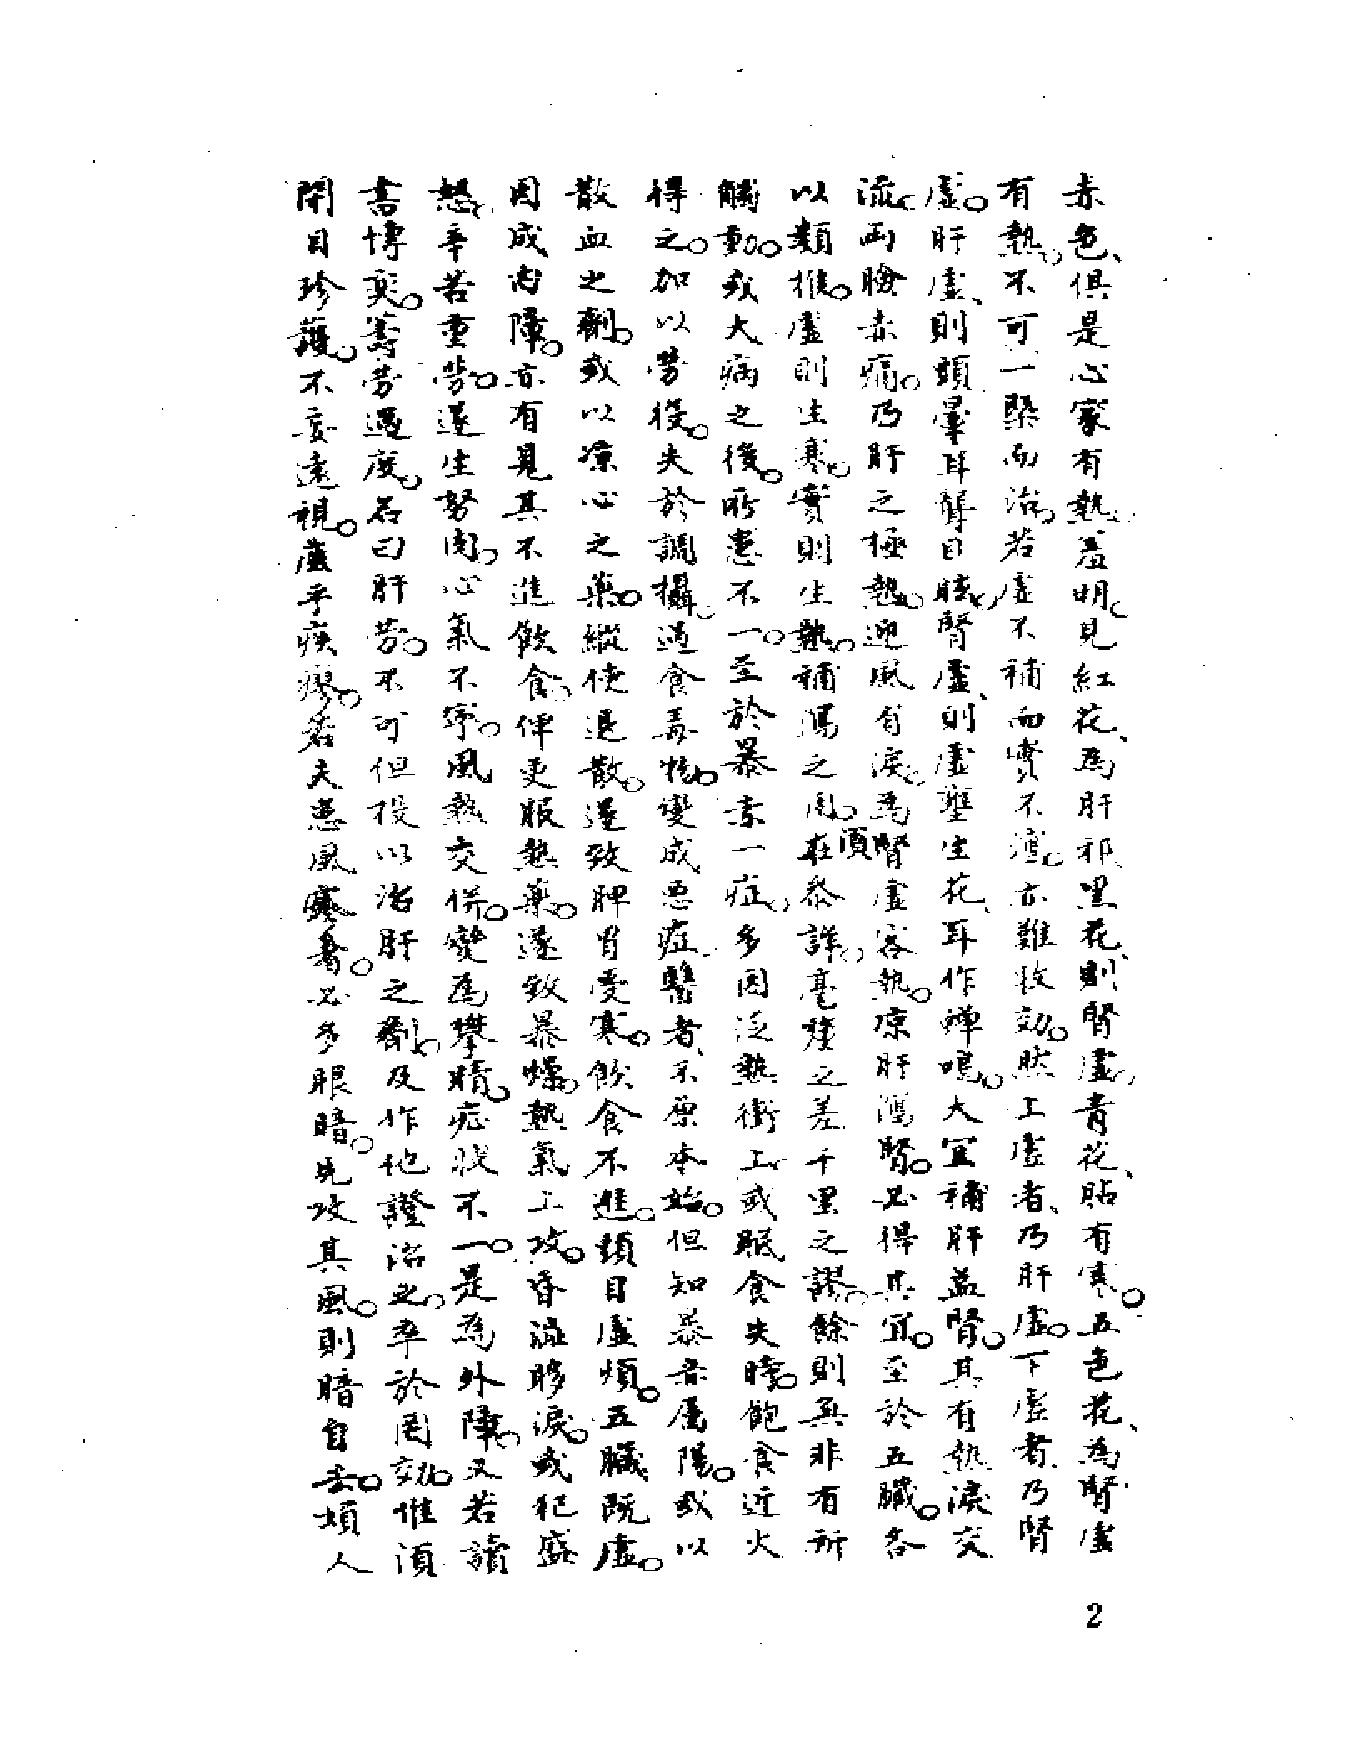 赤色、俱是心家有熱。羞明見紅花、為肝邪、黑花、則腎虛。青花、胎有寒。五色花、為腎虛
有熱。不可一槩而治。若虛不補而實不瀉。亦難收効。然上虛者、乃肝虛。下虛者、乃腎
虛。肝虛、則頭暈耳聾目眩。腎虛、則虛壅生花、耳作蟬鳴。大宜補肝益腎。其有熱淚交
流。兩瞼赤痛。乃肝之極熱。迎風有淚。為腎虛客熱。凉肝瀉腎。必得其宜。至於五臟。各
以類推。虛則生寒。實則生熱。補瀉之用。須在參詳。毫釐之差千里之謬。餘則無非有所
觸動。或大病之後。所患不一。至於暴赤一症。多因泛熱衝上。或眠食失時。飽食近火
得之。加以勞役。失於調攝。過食毒物。變成惡症。醫者、不原本始。但知暴赤屬陽。或以
散血之劑。或以凉心之藥。縱使退散。遂致脾胃受寒。飲食不進。頭目虛煩。五臟既虛。
因成內障。亦有見其不進飲食。俾更服熱藥。遂致暴燥。熱氣上攻。昏澁眵淚。或犯盛
怒。辛苦重勞。遂生努肉。心氣不寧。風熱交併。變為攀睛。症狀不一。是為外障。又若讀
書博奕。等勞過度。名曰肝勞。不可但投以治肝之劑。及作他證治之。卒於罔効。惟須
閉目珍護。不妄遠視。庶乎疾瘳。若夫患風寒者。必多眼暗。先攻其風。則暗自去。婦人
2